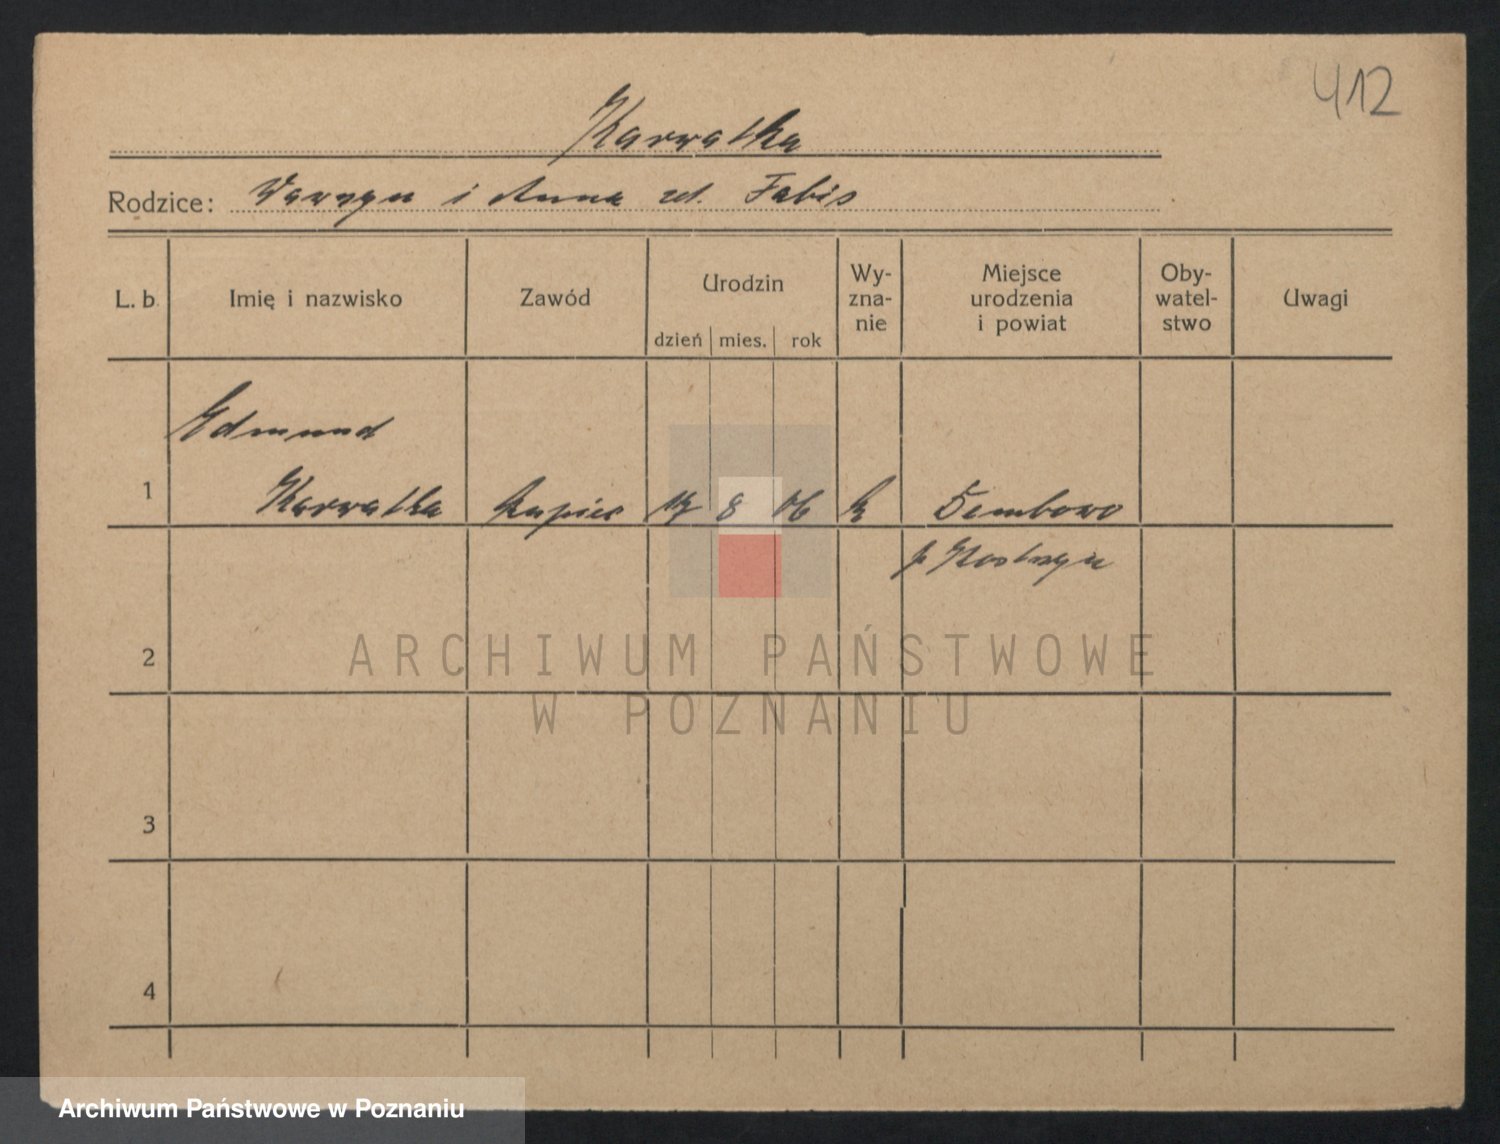 412
Karwatka
Rodzice: Wawrzyn i Anna zd. Fabis
L. b. Imię i nazwisko Zawód Urodzin dzień mies. rok Wy-zna-nie Miejsce urodzenia i powiat Oby-watel-stwo Uwagi
Edmund
1 Karwatka kupiec 17 8 06 k Dembowo
p Kostrzyn
2
3
4
ARCHIWUM PAŃSTWOWE
W POZNANIU
Archiwum Państwowe w Poznaniu